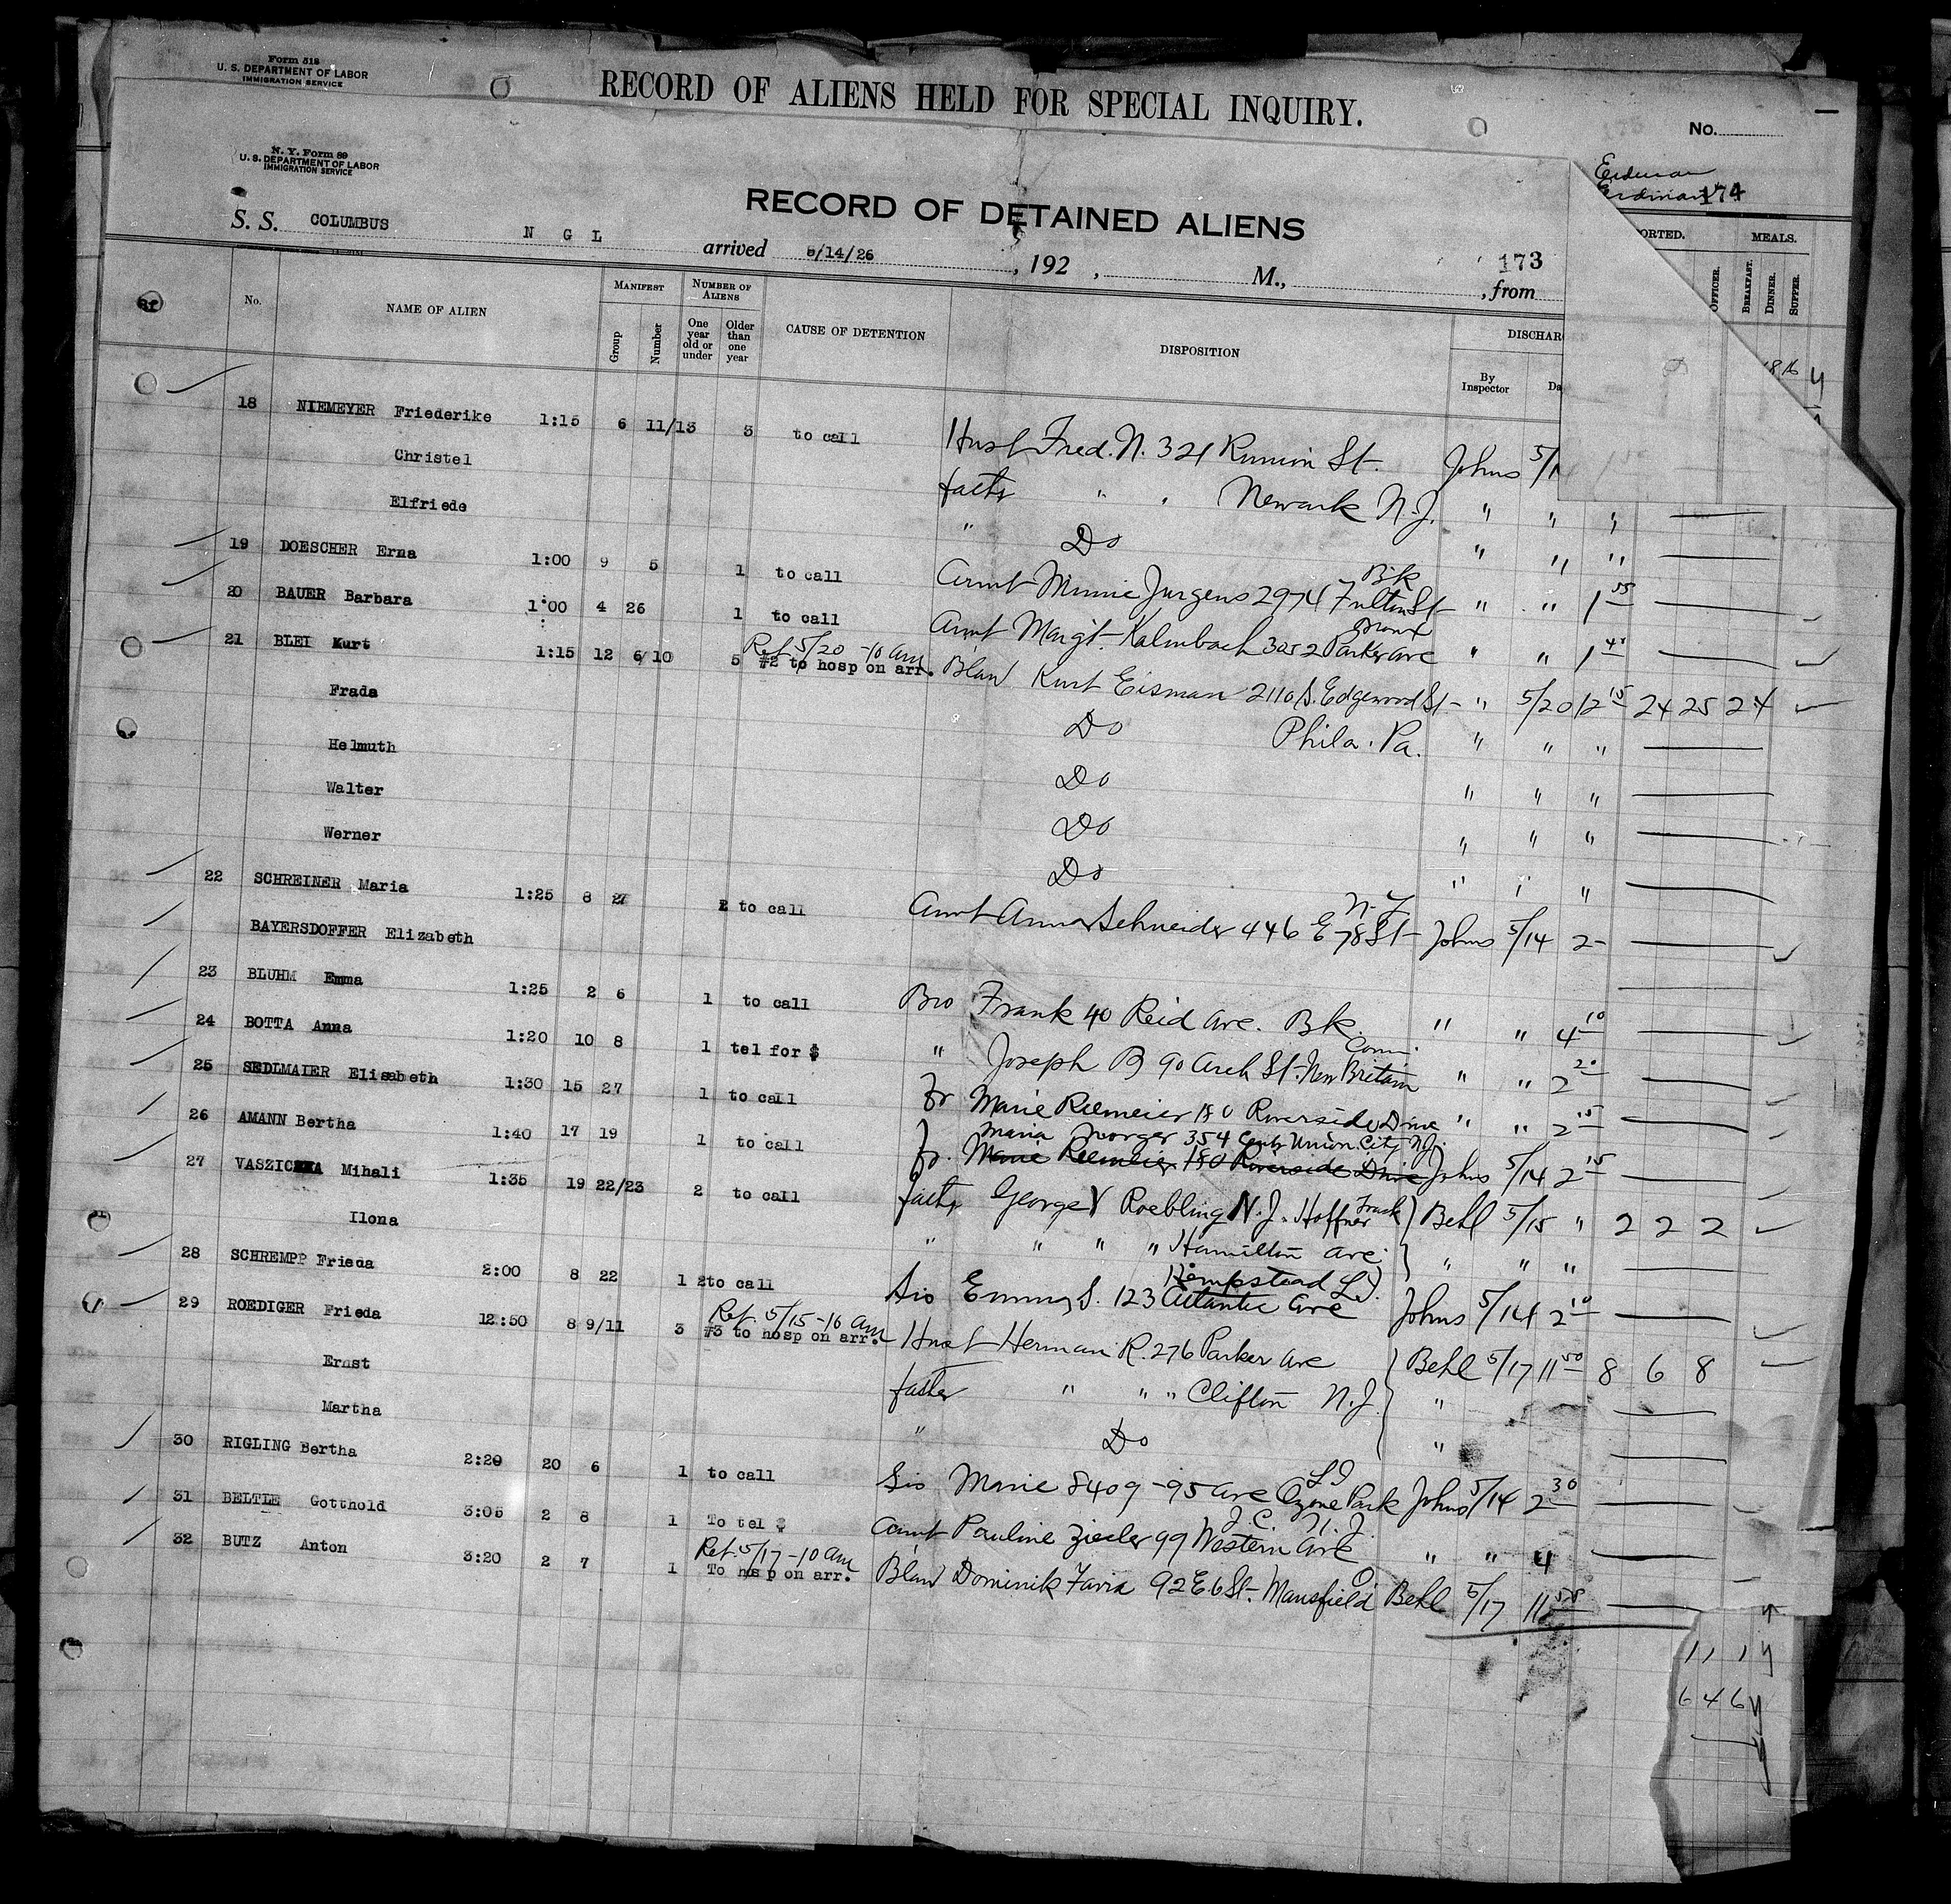 Form 518
U. S. DEPARTMENT OF LABOR
IMMIGRATION SERVICE
RECORD OF ALIENS HELD FOR SPECIAL INQUIRY.
No.
N. Y. Form 89
U. S. DEPARTMENT OF LABOR
IMMIGRATION SERVICE
174
RECORD OF DETAINED ALIENS
S. S. COLUMBUS N G L arrived 5/14/26 , 192 , M., , from
173
ORTED. MEALS.
OFFICER. BREAKFAST. DINNER. SUPPER.
No. NAME OF ALIEN MANIFEST Group Number NUMBER OF ALIENS One year old or under Older than one year CAUSE OF DETENTION DISPOSITION DISCHAR By Inspector Da
18 NIEMEYER Friederike 1:15 6 11/13 3 to call Husb Fred. N. 321 St. Johns 5/1
Christel fathr " " Newark N.J. " " "
Elfriede " Do " " "
19 DOESCHER Erna 1:00 9 5 1 to call Aunt Minnie Jurgens 2974 Fulton St Bk " " 1 55
20 BAUER Barbara 1:00 4 26 1 to call Aunt Margt. Kalmbach 3052 Parker Ave Bronx " " 1 45
21 BLEI Kurt 1:15 12 6/10 5 Ret 5/20 -10 am #2 to hosp on arr. Blaw Kurt Eisman 2110 S. Edgewood St- " 5/20 12 15 24 25 24
Frada Do Phila. Pa. " " "
Helmuth Do " " "
Walter Do " " "
Werner Do " " "
22 SCHREINER Maria 1:25 8 27 2 to call Aunt Anna Schneider 446 E 78 St- N.Y. Johns 5/14 2-
BAYERSDOFFER Elizabeth
23 BLUHM Emma 1:25 2 6 1 to call Bro Frank 40 Reid Ave. Bk. " " 4 10
24 BOTTA Anna 1:20 10 8 1 tel for $ " Joseph B 90 Arch St. New Britain Conn. " " 2 20
25 SEDLMAIER Elisabeth 1:30 15 27 1 to call fr Marie Riemeier 180 Riverside Drive " " 2 15
26 AMANN Bertha 1:40 17 19 1 to call fr. Maria 354 Union City N.J. Marie Riemeier 180 Riverside Drive Johns 5/14 2 15
27 VASZICZKA Mihali 1:35 19 22/23 2 to call fathr George V Roebling N.J. Hoffner Behl 5/15 " 2 2 2
Ilona " " " " Hamilton Ave. " " "
28 SCHREMPP Frieda 2:00 8 22 1 2 to call Sis Emma S. 123 Atlantic Ave Hempstead L.I. Johns 5/14 2 10
29 ROEDIGER Frieda 12:50 8 9/11 3 Ret 5/15-10 am #3 to hosp on arr. Husb Herman R. 276 Parker Ave Behl 5/17 11 50 8 6 8
Ernst father " " " Clifton N.J. "
Martha " Do "
30 RIGLING Bertha 2:20 20 6 1 to call Sis Marie 8409-95 Ave Ozone Park L I Johns 5/14 2 30
31 BELTLE Gotthold 3:05 2 8 1 To tel $ Aunt Pauline Ziegler 99 Western Ave J.C. N.J. " " 4
32 BUTZ Anton 3:20 2 7 1 Ret. 5/17-10 am To hosp on arr. Blaw Dominik Favia 92 E 6 St. Mansfield O Behl 5/17 11 55
1 1 1
6 4 6